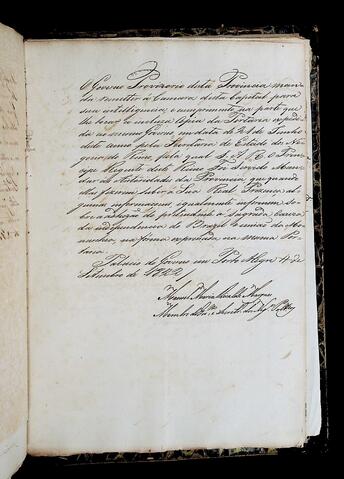 O Governo Provizorio desta Provincia man-
da remetter á Camara desta Capital para
sua intelligencia e cumprimento na parte que
lhe toca a incluza Copia da Portaria expedi-
da ao mesmo Governo em data de 21 de Junho
deste anno pela Secretaria de Estado dos Ne-
gocios do Reino, pela qual S. A. R. o Prin-
cipe Regente deste Reino Foi Servido Man-
dar as Authoridades da Provincia, que quando
lhes fazerem saber a Sua Real Prezença al-
guma informação igualmente informem so-
bre a adhezão do pretendente á Sagrada Cauza
da independencia do Brazil, e união da Mo-
narchia, na forma expressada na mesma Por-
taria.
Palacio do Governo em Porto Alegre 4 de
Setembro de 1822
Manoel Maria
Membro